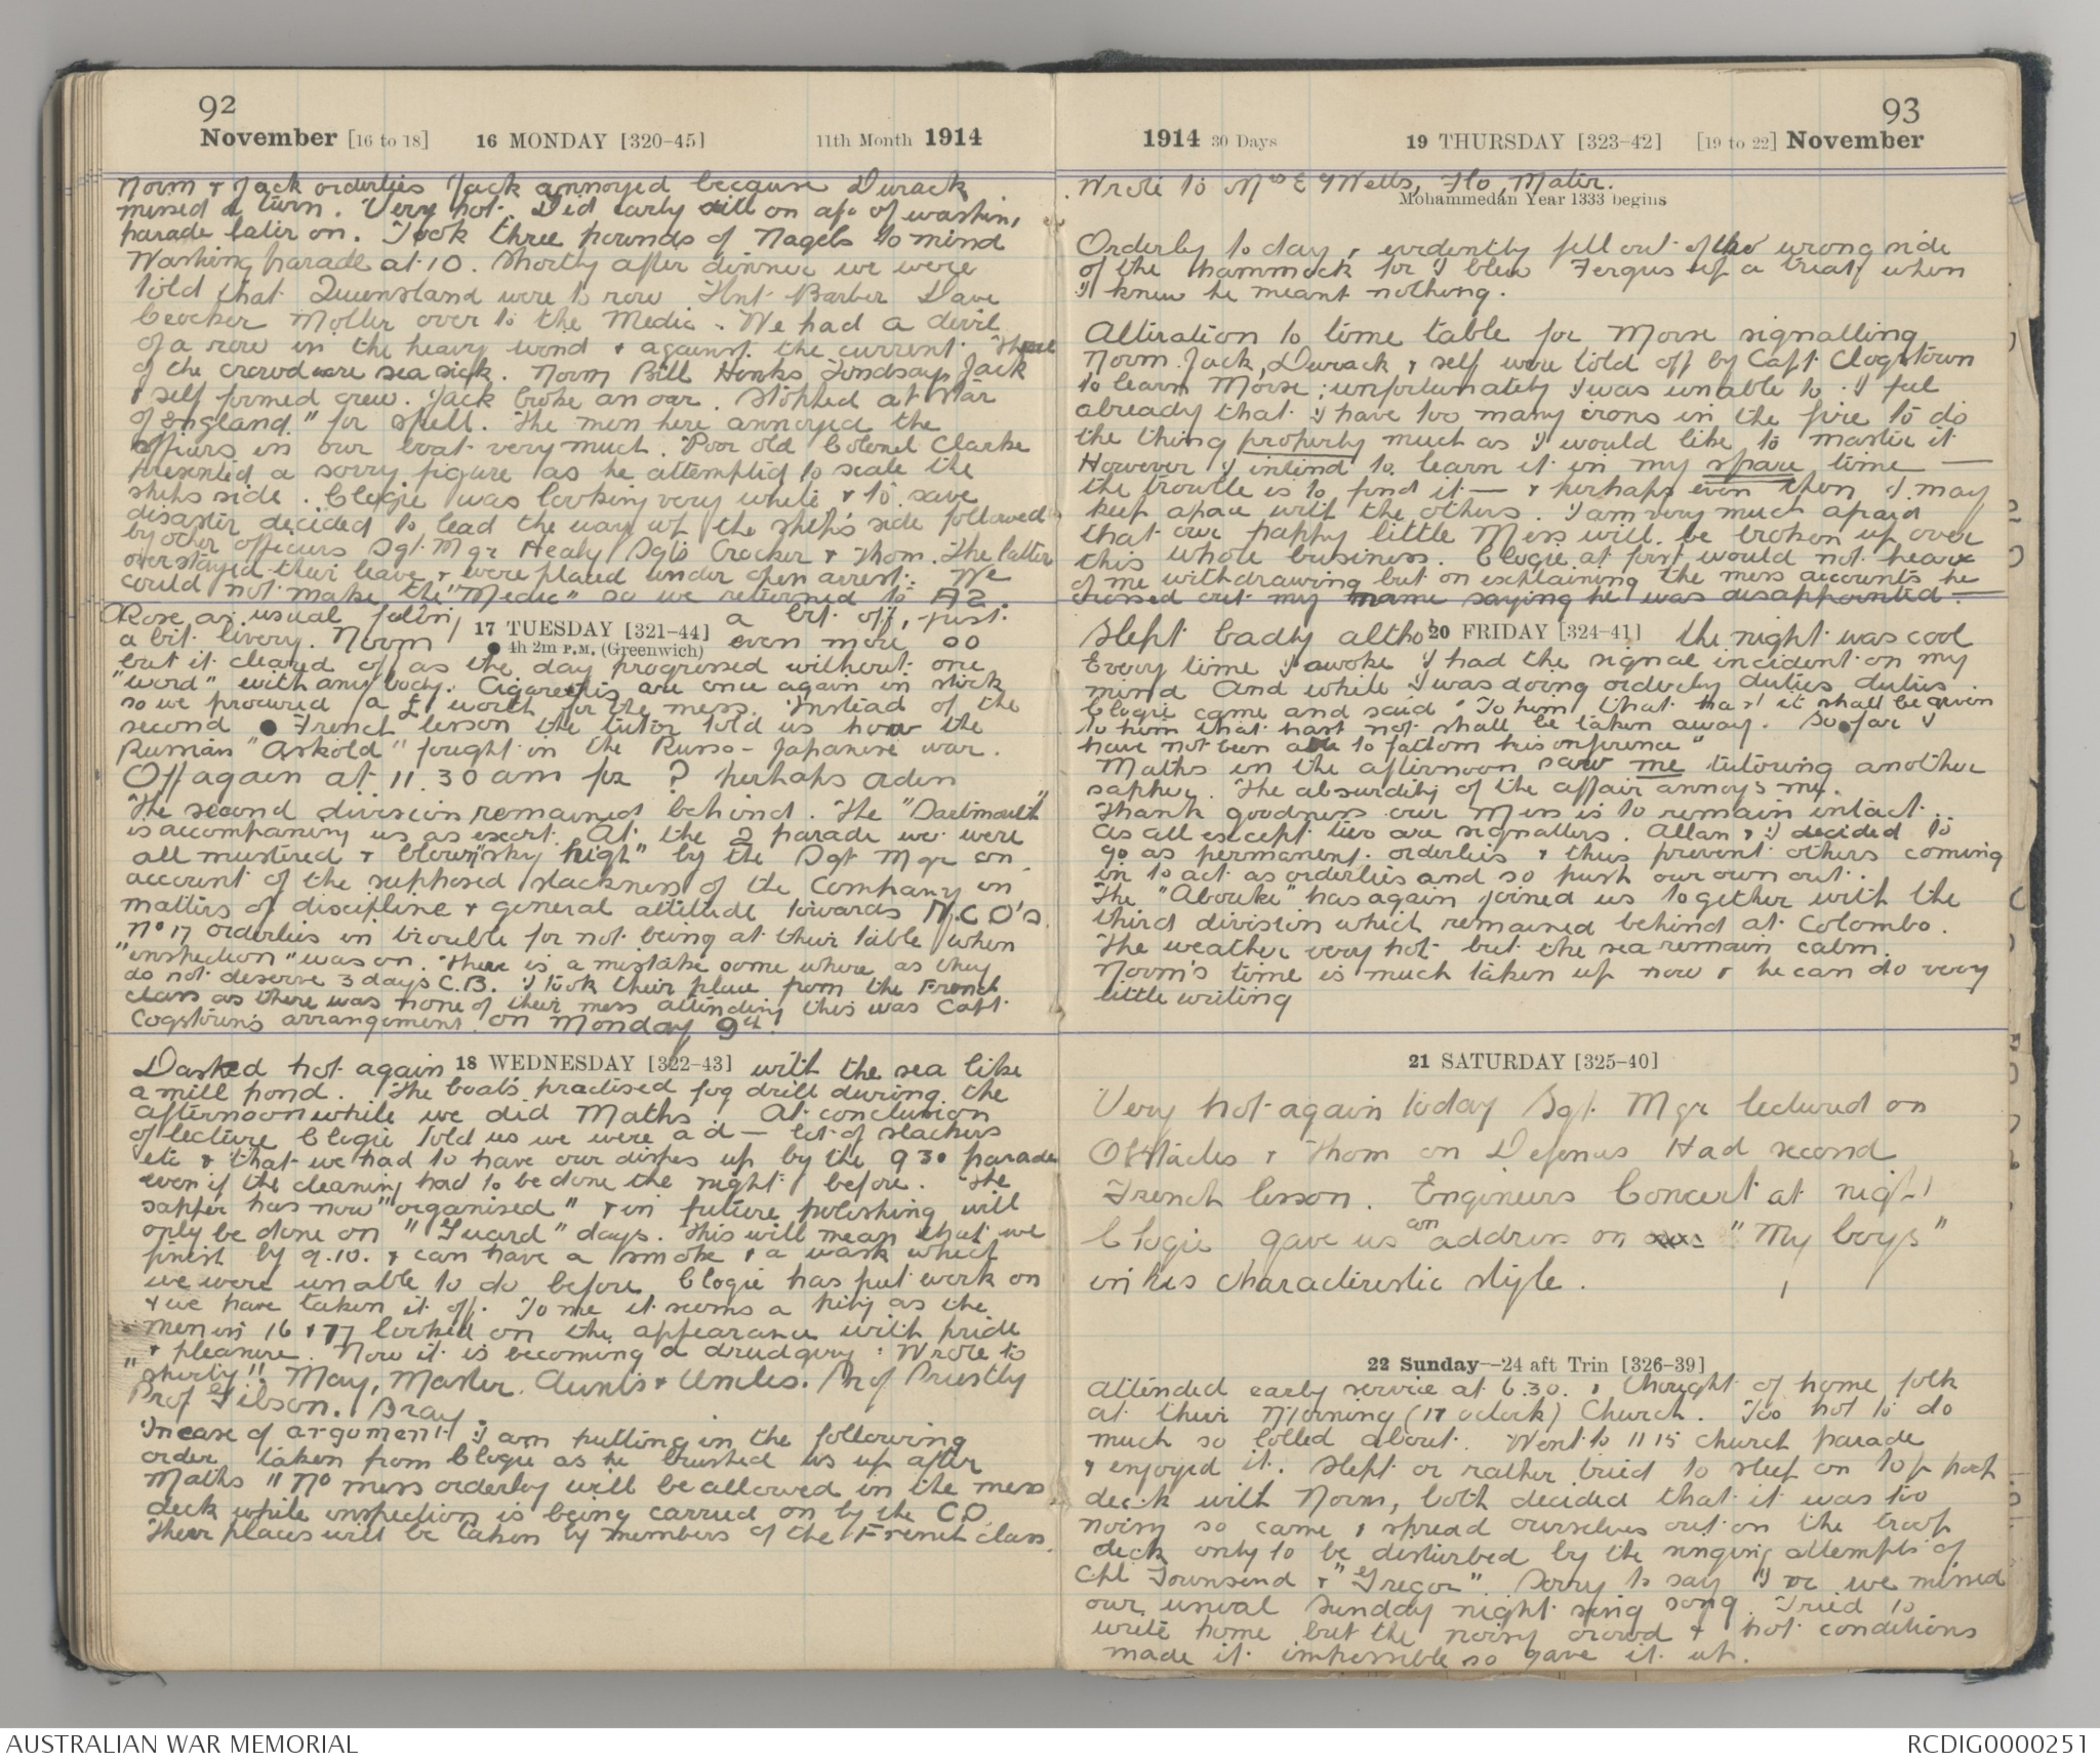 92
November [16 to 18] 16 MONDAY [320-45] 11th Month 1914
Norm & Jack orderlies Jack annoyed because Durack
missed a turn. Very hot. Did early drill on a/c of washing
parade later on. Took three pounds of Nagels to mind
Washing parade at 10. Shortly after dinner we were
told that Queensland were to row Barber Dave
Crocker Moller over to the Medic. We had a devil
of a row in the heavy wind & against the current. Three
of the crowd were sea sick. Norm Bill Hinks Lindsay, Jack
& self formed crew. Jack broke an oar. Stopped at "Star
of England" for spell. The men here annoyed the
officers in our boat very much. Poor old Colonel Clarke
presented a sorry figure as he attempted to scale the
ships side. Clogie was looking very white & to save
disaster decided to lead the way up the ship's side followed
by other officers Sgt. Mgr Healy Sgts Crocker & Thom. The latter
overstayed their leave & were placed under open arrest. We
could not make the "Medic" so we returned to A2.
Rose as usual feeling a bit off, just
17 TUESDAY [321-44]
a bit livery. Norm even more so
4h 2m P.M. (Greenwich)
but it cleared off as the day progressed without one
"word" with any body. Cigarettes are once again in stock
so we procured a £ worth for the mess. Instead of the
second French lesson the tutor told us how the
Russian "Askold" fought in the Russo-Japanese war.
Off again at 11.30 am for ? perhaps Aden
The second division remained behind. The "Dartmouth"
is accompanying us as escort. At the 2 parade we were
all mustered & blown "sky high" by the Sgt Mgr on
account of the supposed slackness of the Company in
matters of discipline & general attitude towards N.C.O's.
No 17 orderlies in trouble for not being at their table when
"inspection" was on. There is a mistake some where as they
do not deserve 3 days C.B. I took their place from the French
class as there was none of their mess attending this was Capt
Cogstown's arrangement on Monday 9th.
18 WEDNESDAY [322-43]
Dashed hot again with the sea like
a mill pond. The boats practised fog drill during the
afternoon while we did Maths. At conclusion
of lecture Clogie told us we were a d— lot of slackers
etc & that we had to have our dishes up by the 930 parade
even if the cleaning had to be done the night before. The
sapper has now "organised" & in future polishing will
only be done on "Guard" days. This will mean that we
finish by 9.10. & can have a smoke & a wash which
we were unable to do before Clogie has put work on
& we have taken it off. To me it seems a pity as the
men in 16 & 17 looked on the appearance with pride
& pleasure. Now it is becoming a drudgery. Wrote to
"Shirly"!! May, Master. Aunts & Uncles. Prof Priestly
Prof Gibson. Bray.
In case of argument I am putting in the following
order taken from Clogie as he brushed us up after
Maths "No mess orderly will be allowed in the mess
deck while inspection is being carried on by the CO.
Their places will be taken by members of the French class.
93
1914 30 Days 19 THURSDAY [323-42] [19 to 22] November
Wrote to Mrs E G Wells, Flo, Mater.
Mohammedan Year 1333 begins
Orderly to day & evidently fell out of the wrong side
of the hammock for I blew Fergus up a treat when
I knew he meant nothing.
Alteration to time table for Morse signalling
Norm. Jack, Durack, & self were told off by Capt Clogstown
to learn Morse; unfortunately I was unable to. I feel
already that I have too many irons in the fire to do
the thing properly much as I would like to master it
However I intend to learn it in my spare time —
the trouble is to find it — & perhaps even then I may
keep apace with the others. I am very much afraid
that our happy little Mess will be broken up over
this whole business. Clogie at first would not hear
of me withdrawing but on explaining the mess accounts he
crossed out my name saying he was disappointed.—
20 FRIDAY [324-41]
Slept badly altho the night was cool
Every time I awoke I had the signal incident on my
mind And while I was doing orderly duties duties
Clogie came and said "To him that has! it shall be given
To him that hast not shall be taken away. So far I
have not been able to fathom his inference"
Maths in the afternoon saw me tutoring another
sapper. The absurdity of the affair annoys me.
Thank goodness our Mess is to remain intact.
As all except two are signallers. Allan & I decided to
go as permanent orderlies & thus prevent others coming
in to act as orderlies and so push our own out.
The "Abouki" has again joined us together with the
third division which remained behind at Colombo.
The weather very hot but the sea remain calm.
Norm's time is much taken up now & he can do very
little writing
21 SATURDAY [325-40]
Very hot again today Sgt. Mgr lectured on
Obstacles & Thom on Defences Had second
French lesson. Engineers Concert at night
Clogie gave us an address on "My boys"
in his characteristic style.
22 Sunday—24 aft Trin [326-39]
Attended early service at 6.30. & thought of home folk
at their Morning (11 oclock) Church. Too hot to do
much so lolled about. Went to 11 15 church parade
& enjoyed it. Slept or rather tried to sleep on top poop
deck with Norm, both decided that it was too
noisy so came & spread ourselves out on the troop
deck only to be disturbed by the singing attempts of
Cpl Townsend & "Gregor". Sorry to say I or we missed
our usual Sunday night sing song. Tried to
write home but the noisy crowd & hot conditions
made it impossible so gave it up.
AUSTRALIAN WAR MEMORIAL
RCDIG0000251